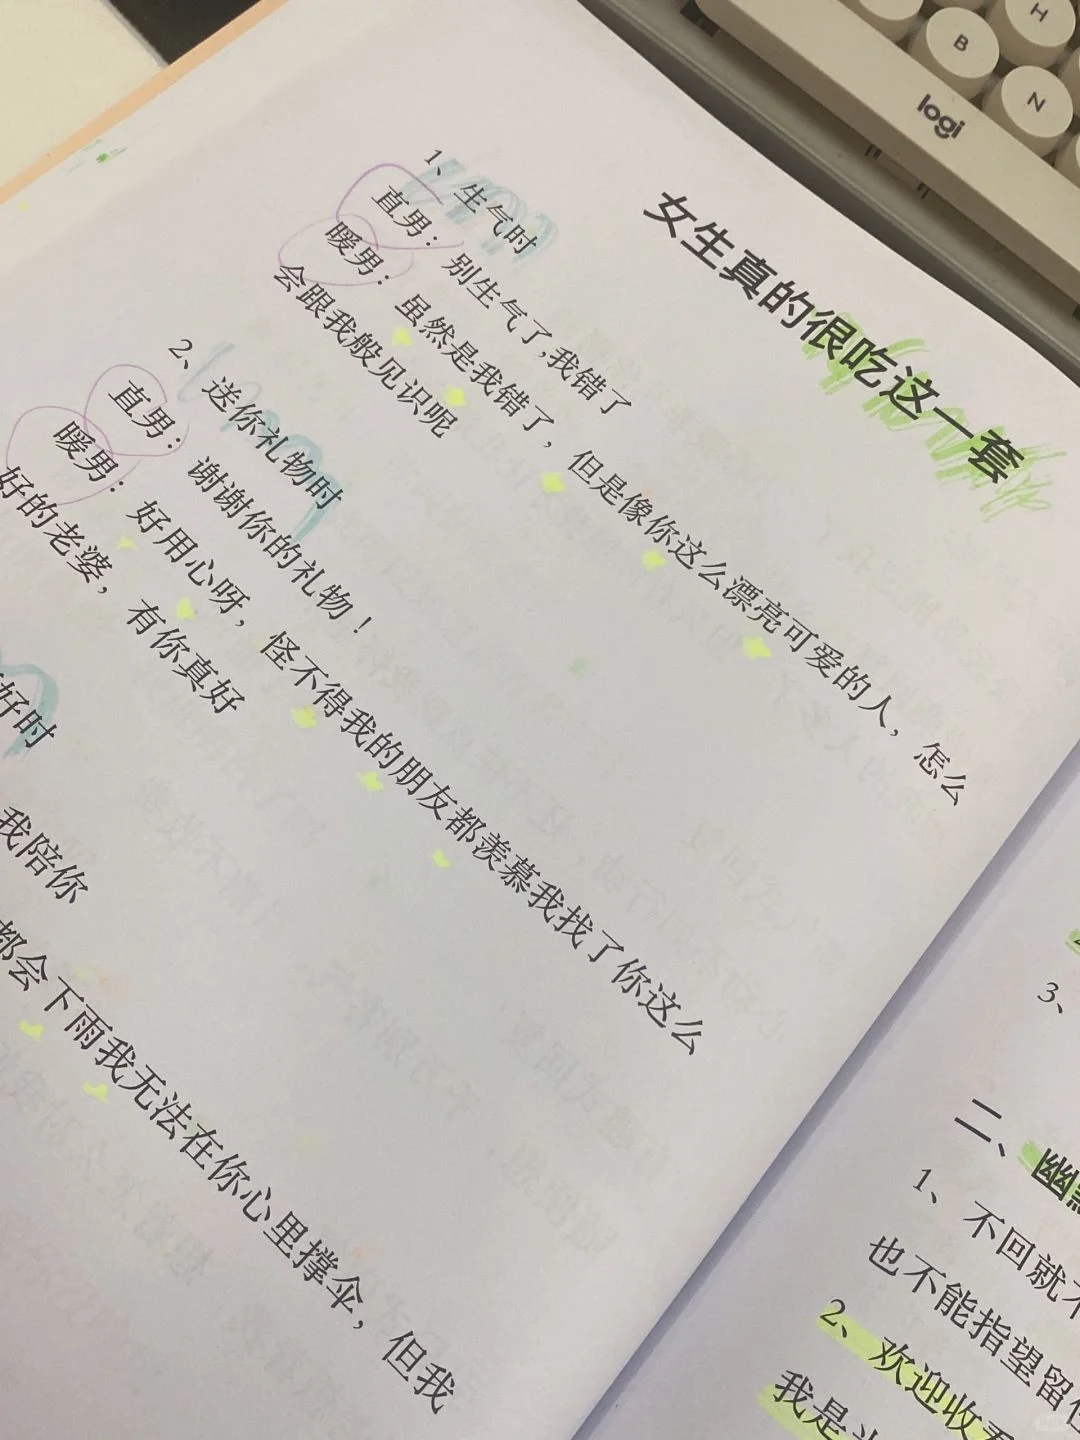 H
B
N
logi
女生真的很吃这一套
1、生气时
直男：别生气了,我错了
暖男：虽然是我错了，但是像你这么漂亮可爱的人，怎么
会跟我般见识呢
2、送你礼物时
直男：谢谢你的礼物！
暖男：好用心呀，怪不得我的朋友都羡慕我找了你这么
好的老婆，有你真好
好时
我陪你
都会下雨我无法在你心里撑伞，但我
3、
二、幽默
1、不回就不
也不能指望留住
2、欢迎收看
我是